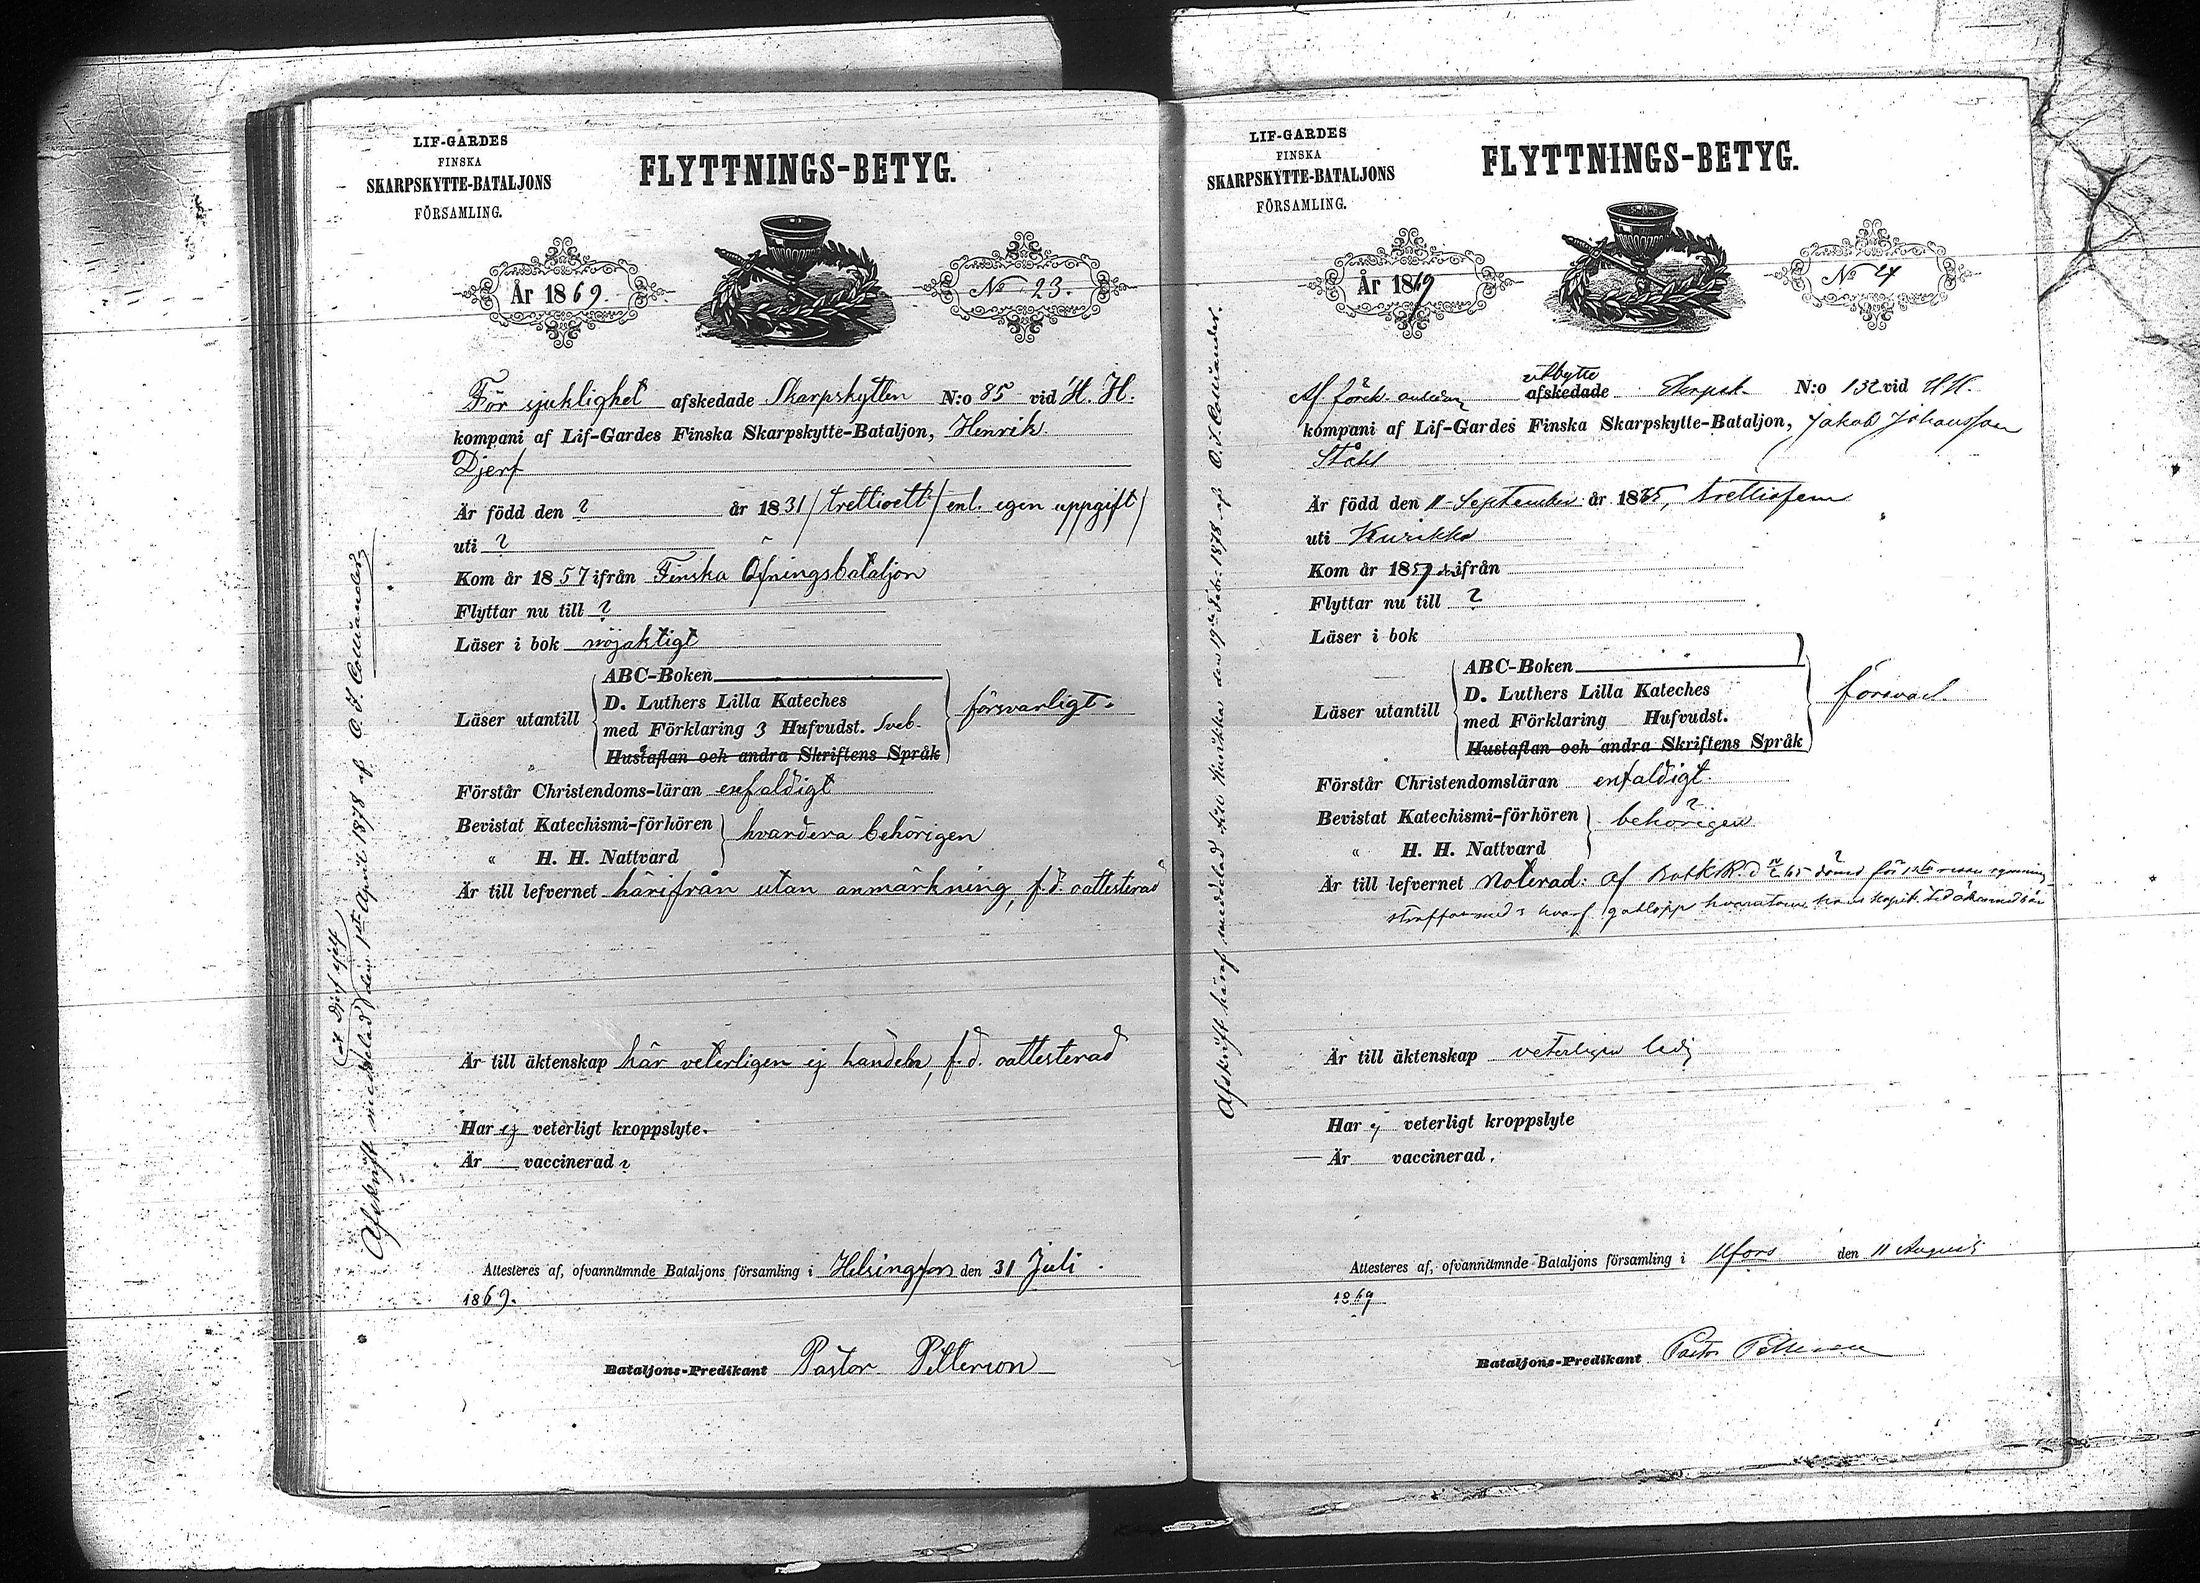 LIF-GARDES
FINSKA
SKARPSKYTTE-BATALJONS
FÖRSAMLING.
FLYTTNINGS-BETYG.
År 1869.
No 23.
För sjuklighet afskedade Skarpskytten N:o 85 vid H. H.
kompani af Lif-Gardes Finska Skarpskytte-Bataljon, Henrik
Djerf
Är född den ? år 1831 / trettioett / enl. egen uppgift /
uti ?
Kom år 1857 ifrån Finska Öfningsbataljon
Flyttar nu till ?
Läser i bok nöjaktigt
ABC-Boken
D. Luthers Lilla Kateches
Läser utantill
med Förklaring 3 Hufvudst. Sveb.
försvarligt.
Hustaflan och andra Skriftens Språk
Förstår Christendoms-läran enfaldigt
Bevistat Katechismi-förhören
hvardera behörigen
" H. H. Nattvard
Är till lefvernet härifrån utan anmärkning, f.d. oattesterad
Är till äktenskap här veterligen ej handeln, f.d. oattesterad
Har ej veterligt kroppslyte.
Är vaccinerad ?
Attesteres af, ofvannämnde Bataljons församling i Helsingfors den 31 Juli.
1869.
Bataljons-Predikant Pastor Petterson
Afskrift meddelad den 1sta April 1878 af O. I. Colliander
åt Djerf sjelf
LIF-GARDES
FINSKA
SKARPSKYTTE-BATALJONS
FÖRSAMLING.
FLYTTNINGS-BETYG.
År 1869
No 24
utbytte
Af förek. afskedade Skrpsk. N:o 132 vid HH.
kompani af Lif-Gardes Finska Skarpskytte-Bataljon, Jakob Johansson
Ståhl
Är född den 11 September år 1835, trettiofem
uti Kurikka
Kom år 1857 ifrån
Flyttar nu till ?
Läser i bok
ABC-Boken
D. Luthers Lilla Kateches
Läser utantill
med Förklaring Hufvudst.
försvarl.
Hustaflan och andra Skriftens Språk
Förstår Christendomsläran enfaldigt.
Bevistat Katechismi-förhören
behörigen
" H. H. Nattvard
Är till lefvernet Noterad: af 65 dömd för 1sta resan rymning
straffas med 3 hvarf gatlopp
Är till äktenskap veterligen ledig
Har ej veterligt kroppslyte
Är vaccinerad.
Attesteres af, ofvannämnde Bataljons församling i Hfors den 11 Augusti
1869
Bataljons-Predikant Pastor Petterson
Afskrift häraf meddelad Kurikka den 19de Febr. 1878 af O. I. Colliander.